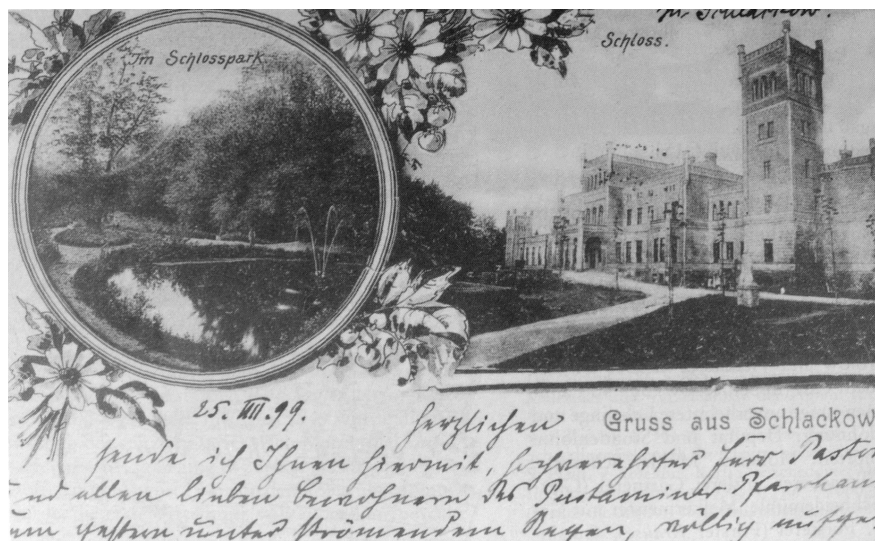 Schlackow.
Im Schlosspark.
Schloss.
25. VIII. 99.
herzlichen Gruss aus Schlackow
sende ich Ihnen hiermit, hochverehrter Herr Pastor
und allen lieben Bewohnern des Pustaminer Pfarrhau
gestern unter strömendem Regen, völlig aufge